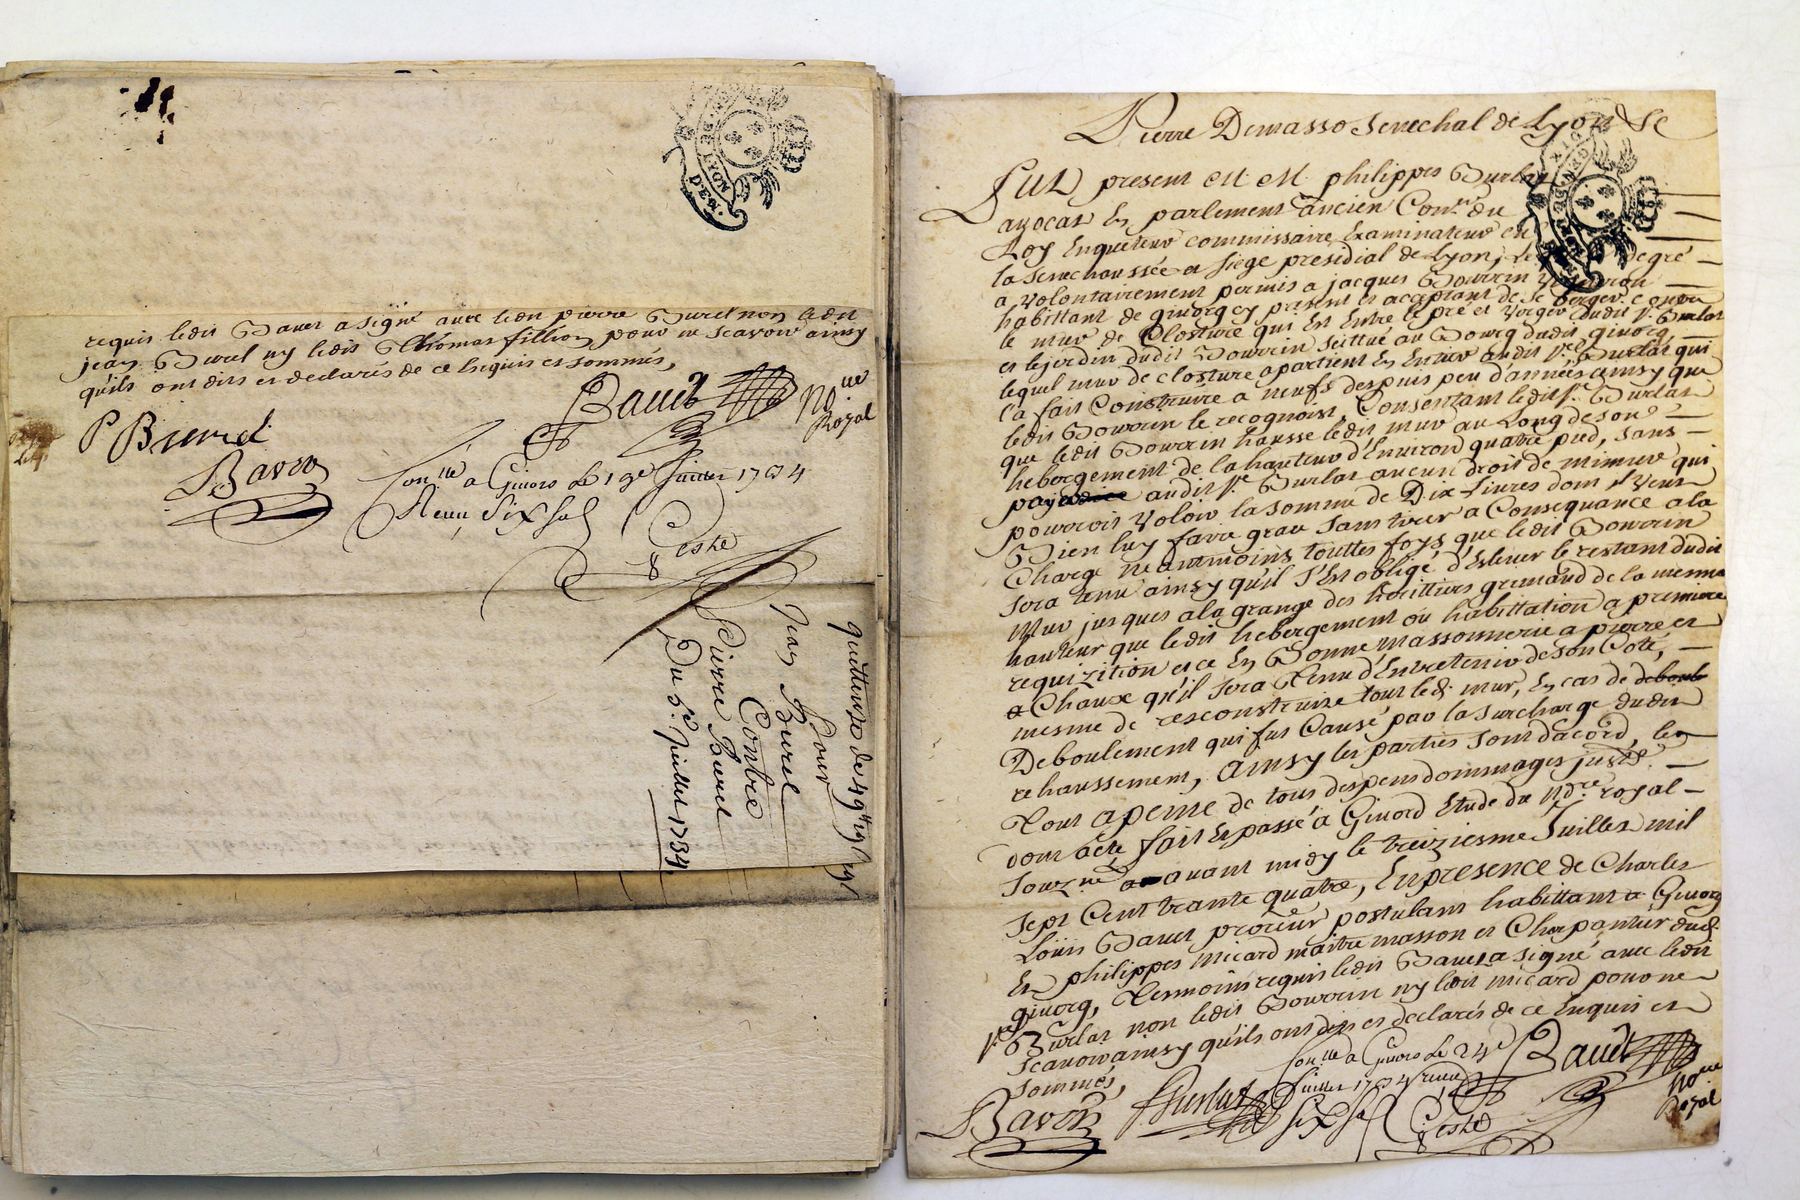 requis ledit Bauet a signé avec ledit pierre Burel non ledit
jean Burel ny ledit Thomas fillion pour ne scavoir ainsy
qu'ils ont dit et declarés de ce Enquis et sommés,
Bauet
No.re Royal
P Burel
Bavet
Con.llé a Givors Le 19e Juillet 1734
Reçu Six sols
Quittance de 49lt
Pour
Jean Burel
Contre
Pierre Burel
Du 5.e Juillet 1734.
LYON
Pierre Demasso Senechal de Lyon &c
Fut present M. M. philippes Burlat
avocat En parlement ancien Con.er du
Roy Enqueteur commissaire Examinateur en
la Senechaussée et siege presidial de Lyon, degré
a Volontairement permis a jacques Bourrin Vigneron
habittant de givorg cy present et acceptant de se berger contre
le mur de Closture qui est Entre le pré et Verger dudit s.r Burlat
et le jerdin dudit Bourrin scittué au Bourg dudit givorg
lequel mur de closture apartient En Entier audit s.r Burlat qui
l'a fait Construire a neufs despuis peu d'années ainsy que
ledit Bourrin le recognoist, Consentant ledit s.r Burlat
que ledit Bourrin hausse ledit mur au Long de son
hebergement de la hauteur d'Environ quatre pied, sans
payer audit s.r Burlat aucun droit de mimure qui
pourroit Valoir la somme de Dix Livres dont il Veut
Bien luy faire grace sans tirer a Consequance a la
Charge neantmoins touttes foys que ledit Bourrin
sera tenu ainsy qu'il s'Est obligé d'Eslever le restant dudit
Mur jusques a la grange des heritiers grimaud de la mesme
hauteur que ledit hebergement ou habittation a premiere
requizition et ce En Bonne massonnerie a pierre et
a Chaux qu'il sera Tenu d'Entretenir de son Coté,
mesme de rescontruire tout led. mur, En cas de
Deboulement qui fut Causé par la surcharge dudit
rehaussement, ainsy les parties sont d'acord, le
Tout a peine de tous despens dommages
dont acte fait et passé a Givord Etude du No.re royal
souz.né avant midy le treiziesme Juillet mil
sept Cent trante quatre, En presence de Charles
Loüis Bavet procêur postulant habittant a Givorg
Et philippes micard maitre masson et Charpantier dud.
givorg, Tesmoins requis ledit Bavet a signé avec ledit
s.r Burlat non ledit Bourrin ny ledit micard pour ne
scavoir ainsy qu'ils ont dit et declarés de ce Enquis et
sommés,
Con.llé a Givors Le 24e
Juillet 1734 reçu
Six sols
Bauet
No.re Royal
Bavet
Burlat